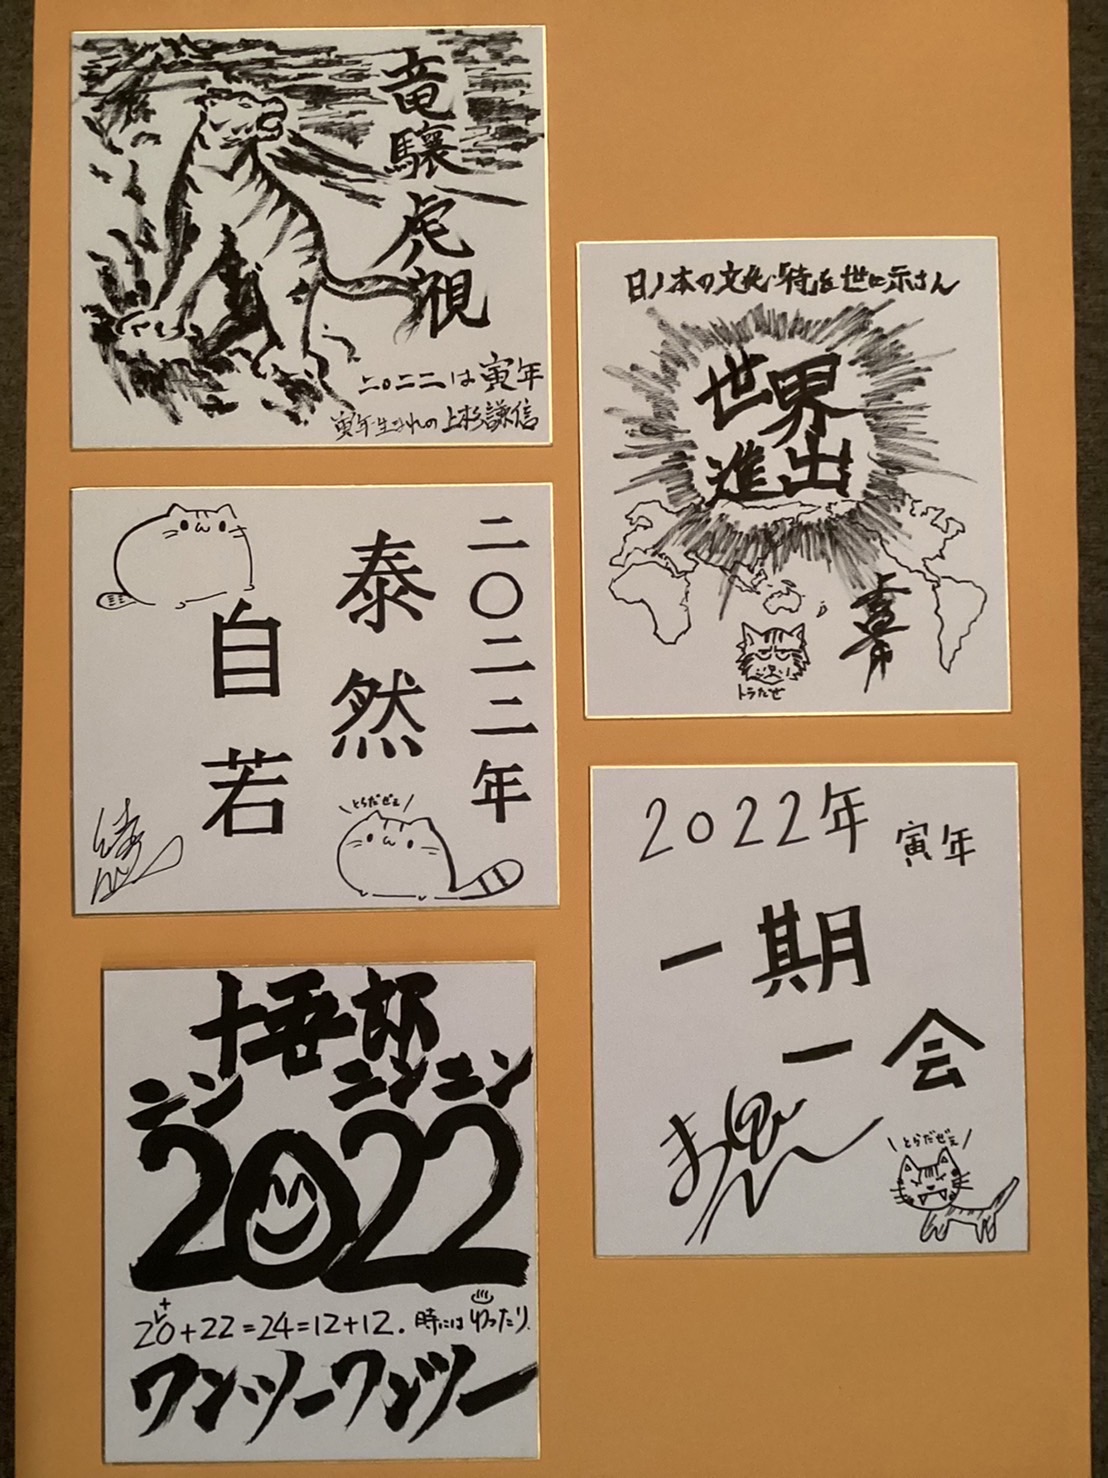 竜驤虎視
二〇二二は寅年
寅年生まれの上杉謙信
日ノ本の文化・侍を世に示さん
世界
進出
トラだぜ
二〇二二年
泰然
自若
とらだぜぇ
2022年
寅年
一期
一会
とらだぜぇ
十吾郎
ニン ニンニン
2022
2+0+22=24=12+12. 時には ゆったり.
ワン・ツーワンツー